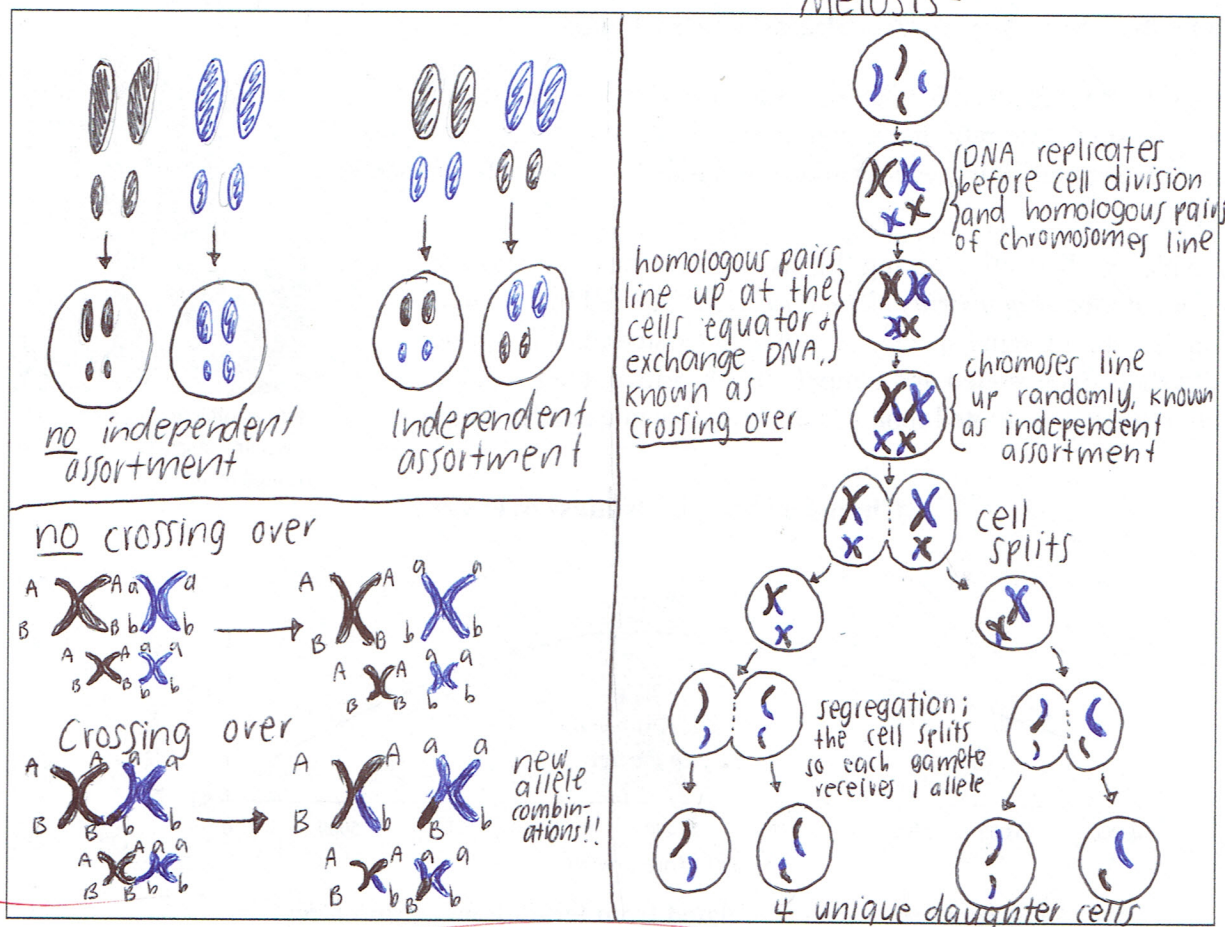 Meiosis
no independent
assortment
Independent
assortment
no crossing over
A A a a
B B b b
A A a a
B B b b
A A a a
B B b b
A A a a
B B b b
Crossing over
A A a a
B B b b
A A a a
B B b b
A A a a
B b B b
A A a a
B b B b
new
allele
combin-
ations!!
DNA replicates
before cell division
and homologous pairs
of chromosomes line
homologous pairs
line up at the
cells equator &
exchange DNA,
known as
crossing over
chromoses line
up randomly, known
as independent
assortment
cell
splits
segregation;
the cell splits
so each gamete
receives 1 allele
4 unique daughter cells